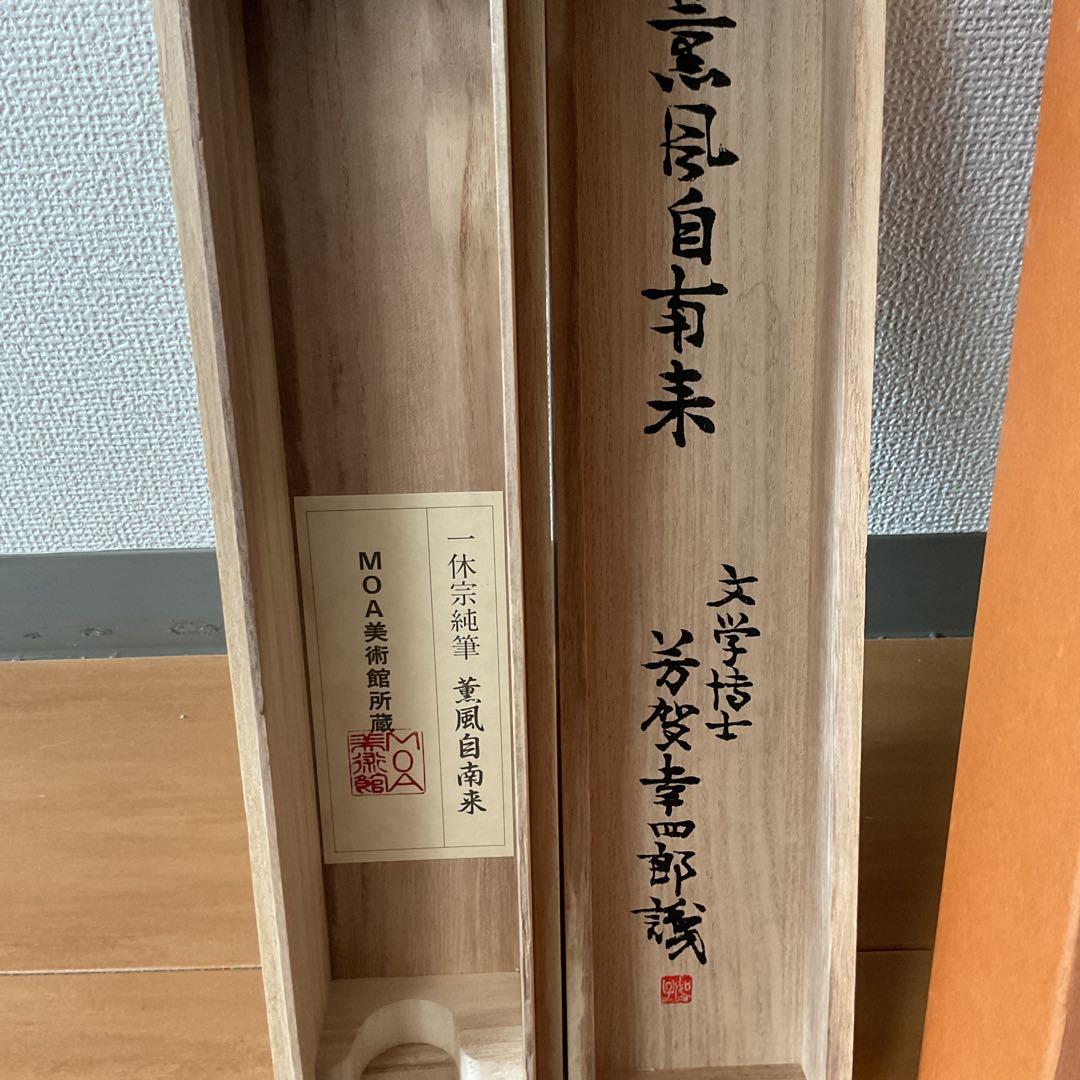 薫風自南来
文学博士
芳賀幸四郎識
一休宗純筆 薫風自南来
MOA美術館所蔵
MOA
美術館